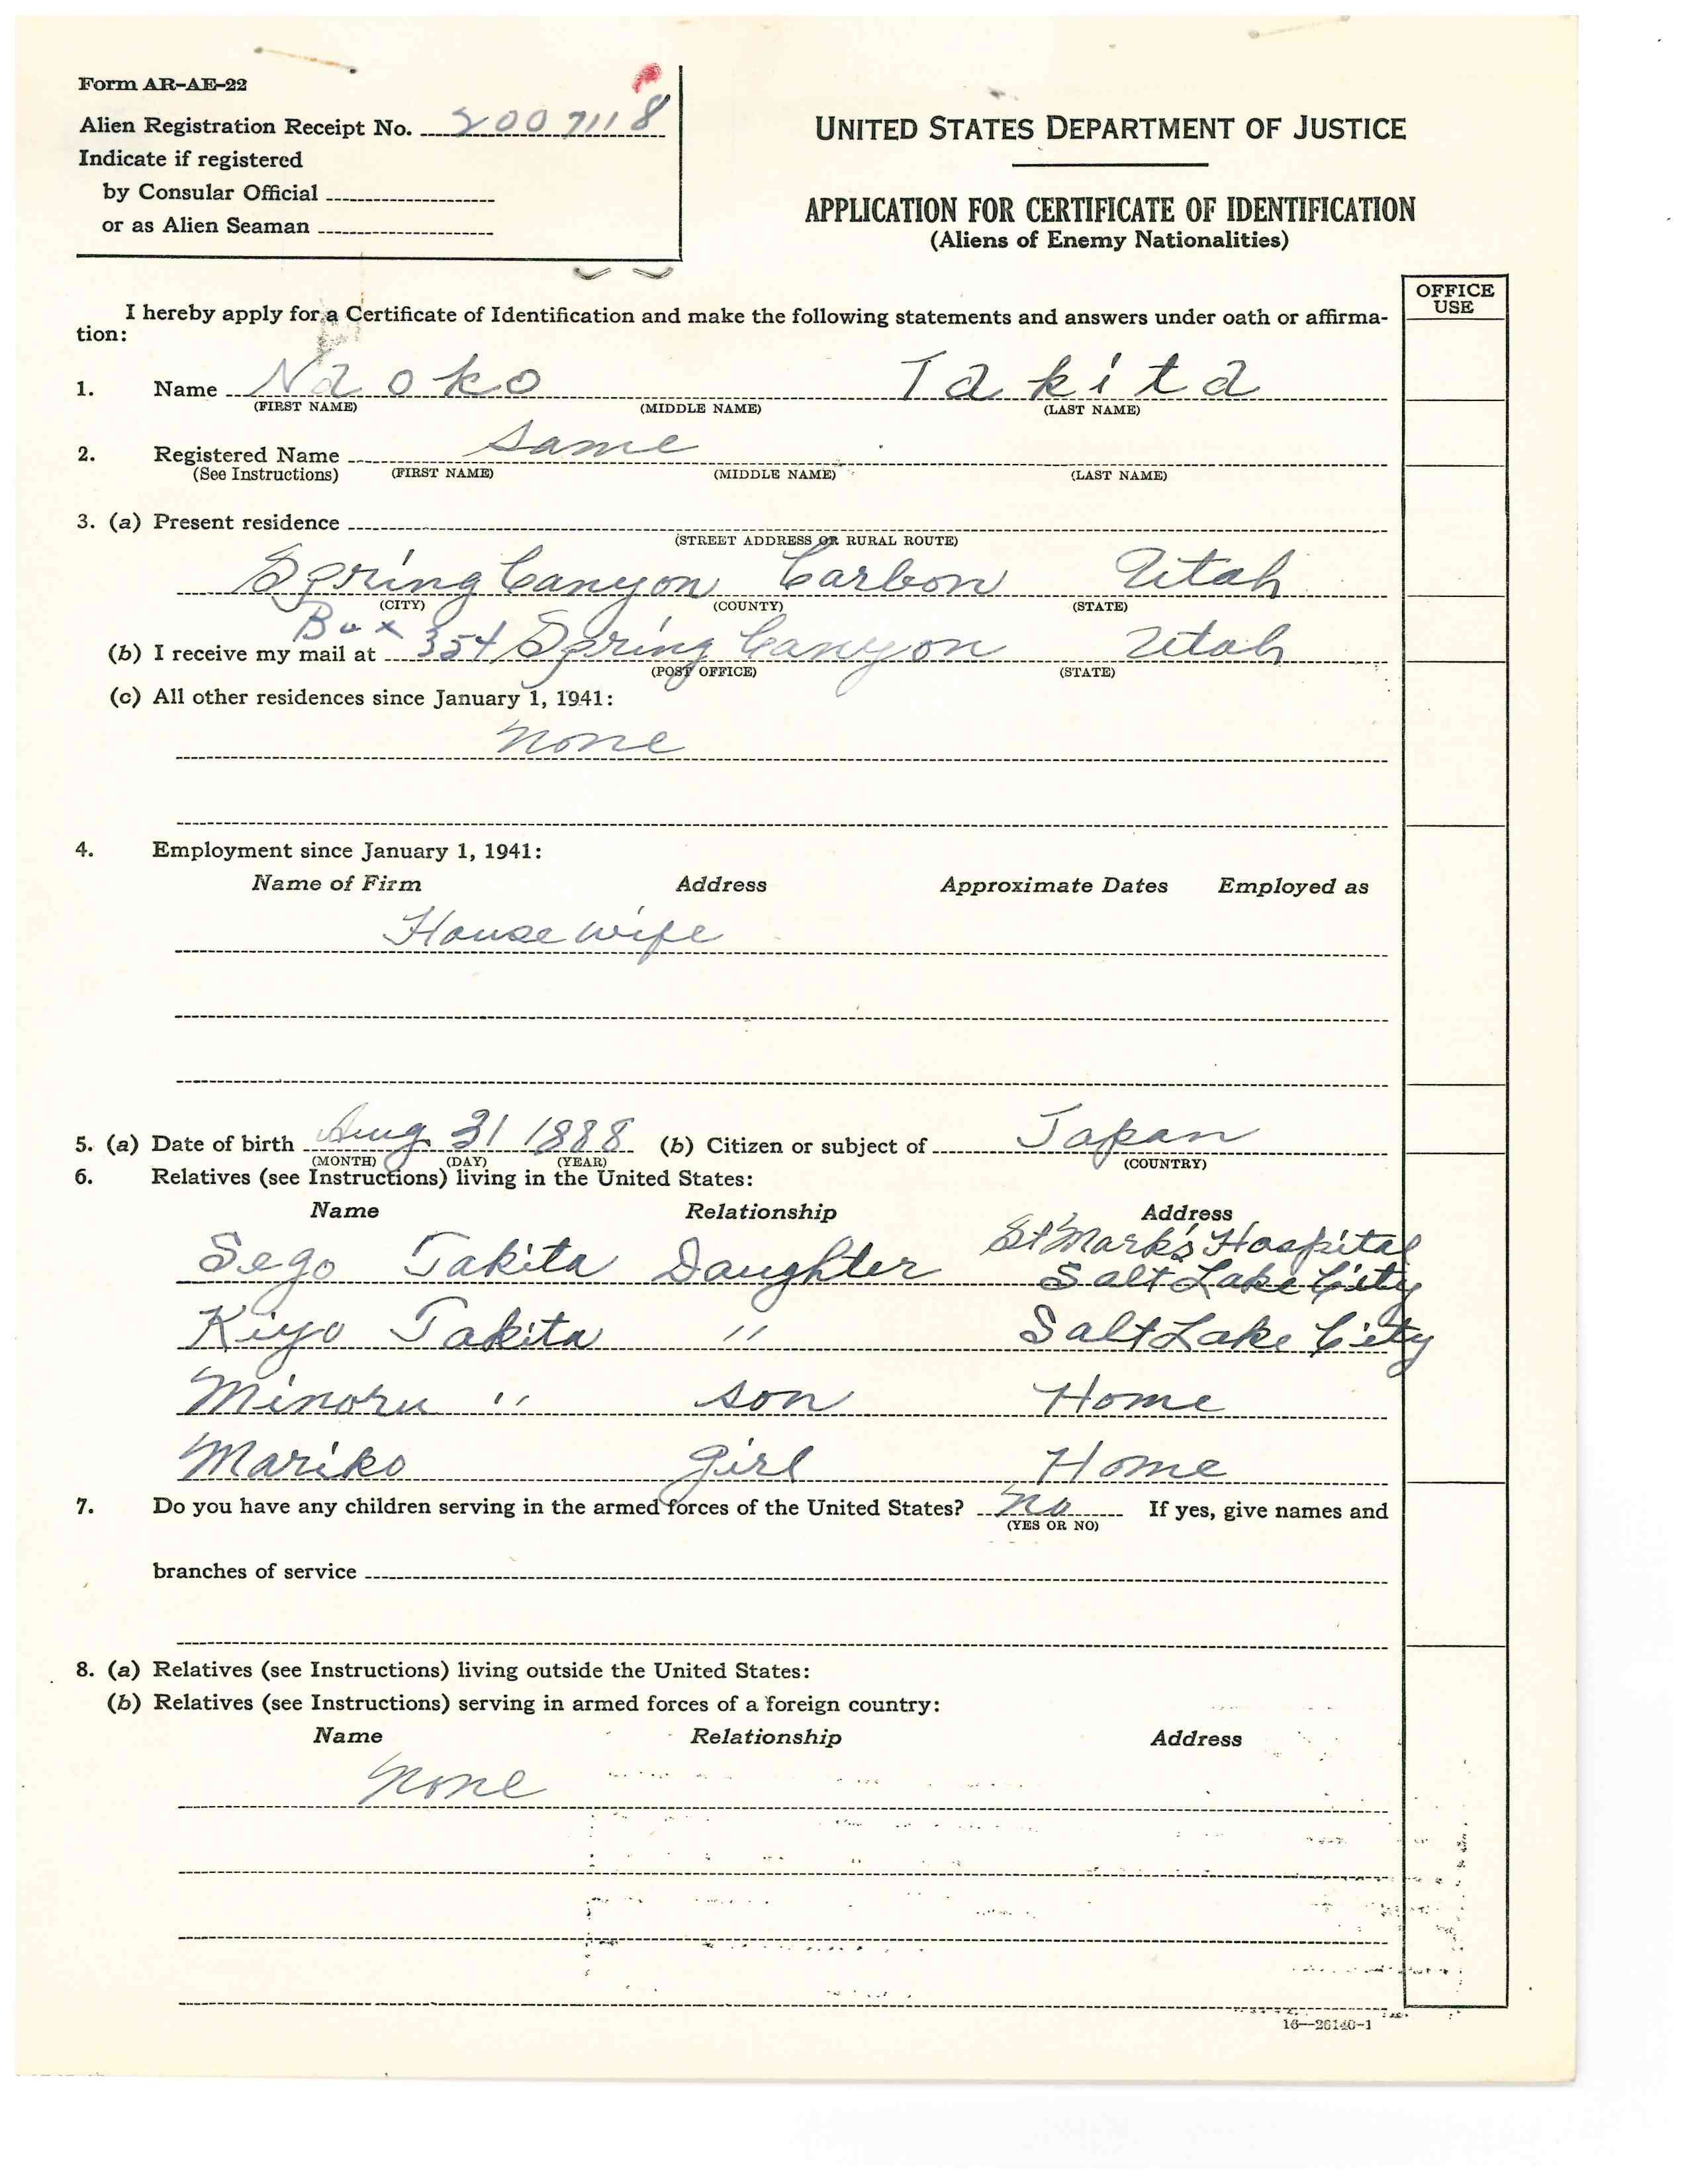 Form AR-AE-22
Alien Registration Receipt No. 2007118
Indicate if registered
by Consular Official
or as Alien Seaman
UNITED STATES DEPARTMENT OF JUSTICE
APPLICATION FOR CERTIFICATE OF IDENTIFICATION
(Aliens of Enemy Nationalities)
OFFICE
USE
I hereby apply for a Certificate of Identification and make the following statements and answers under oath or affirma-
tion:
1. Name Naoko Takita
(FIRST NAME) (MIDDLE NAME) (LAST NAME)
2. Registered Name same
(See Instructions) (FIRST NAME) (MIDDLE NAME) (LAST NAME)
3. (a) Present residence
(STREET ADDRESS OR RURAL ROUTE)
Spring Canyon Carbon Utah
(CITY) (COUNTY) (STATE)
Box
(b) I receive my mail at 354 Spring Canyon Utah
(POST OFFICE) (STATE)
(c) All other residences since January 1, 1941:
none
4. Employment since January 1, 1941:
Name of Firm Address Approximate Dates Employed as
House wife
5. (a) Date of birth Aug. 31 1888 (b) Citizen or subject of Japan
(MONTH) (DAY) (YEAR) (COUNTRY)
6. Relatives (see Instructions) living in the United States:
Name Relationship Address
St Mark's Hospital
Sego Takita Daughter Salt Lake City
Kiyo Takita " Salt Lake City
Minoru " son Home
Mariko girl Home
7. Do you have any children serving in the armed forces of the United States? no If yes, give names and
(YES OR NO)
branches of service
8. (a) Relatives (see Instructions) living outside the United States:
(b) Relatives (see Instructions) serving in armed forces of a foreign country:
Name Relationship Address
none
16—26140-1